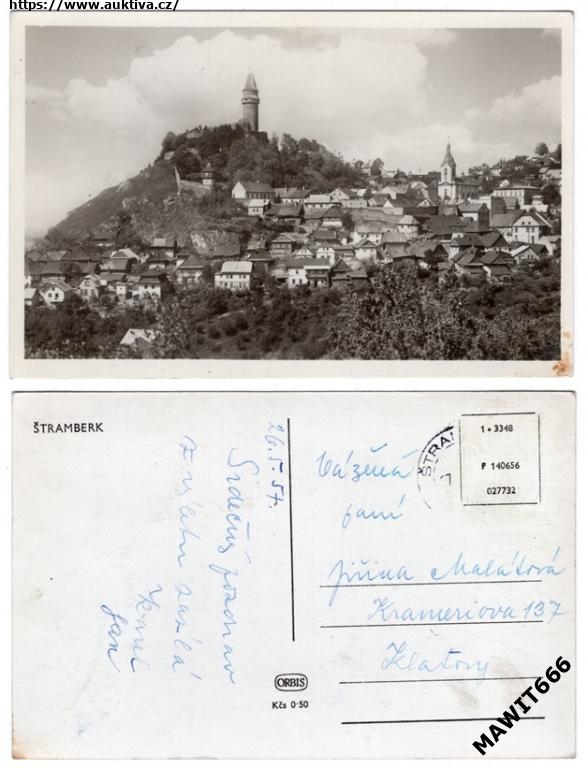 https://www.auktiva.cz/
ŠTRAMBERK
26.5.57.
Srdečný pozdrav
z výletu zasílá
Karel
Jan
ŠTRA
1 • 3348
P 140656
027732
Vážená
paní
Jiřina Malátová
Krameriova 137
Klatovy
ORBIS
Kčs 0·50
MAWIT666